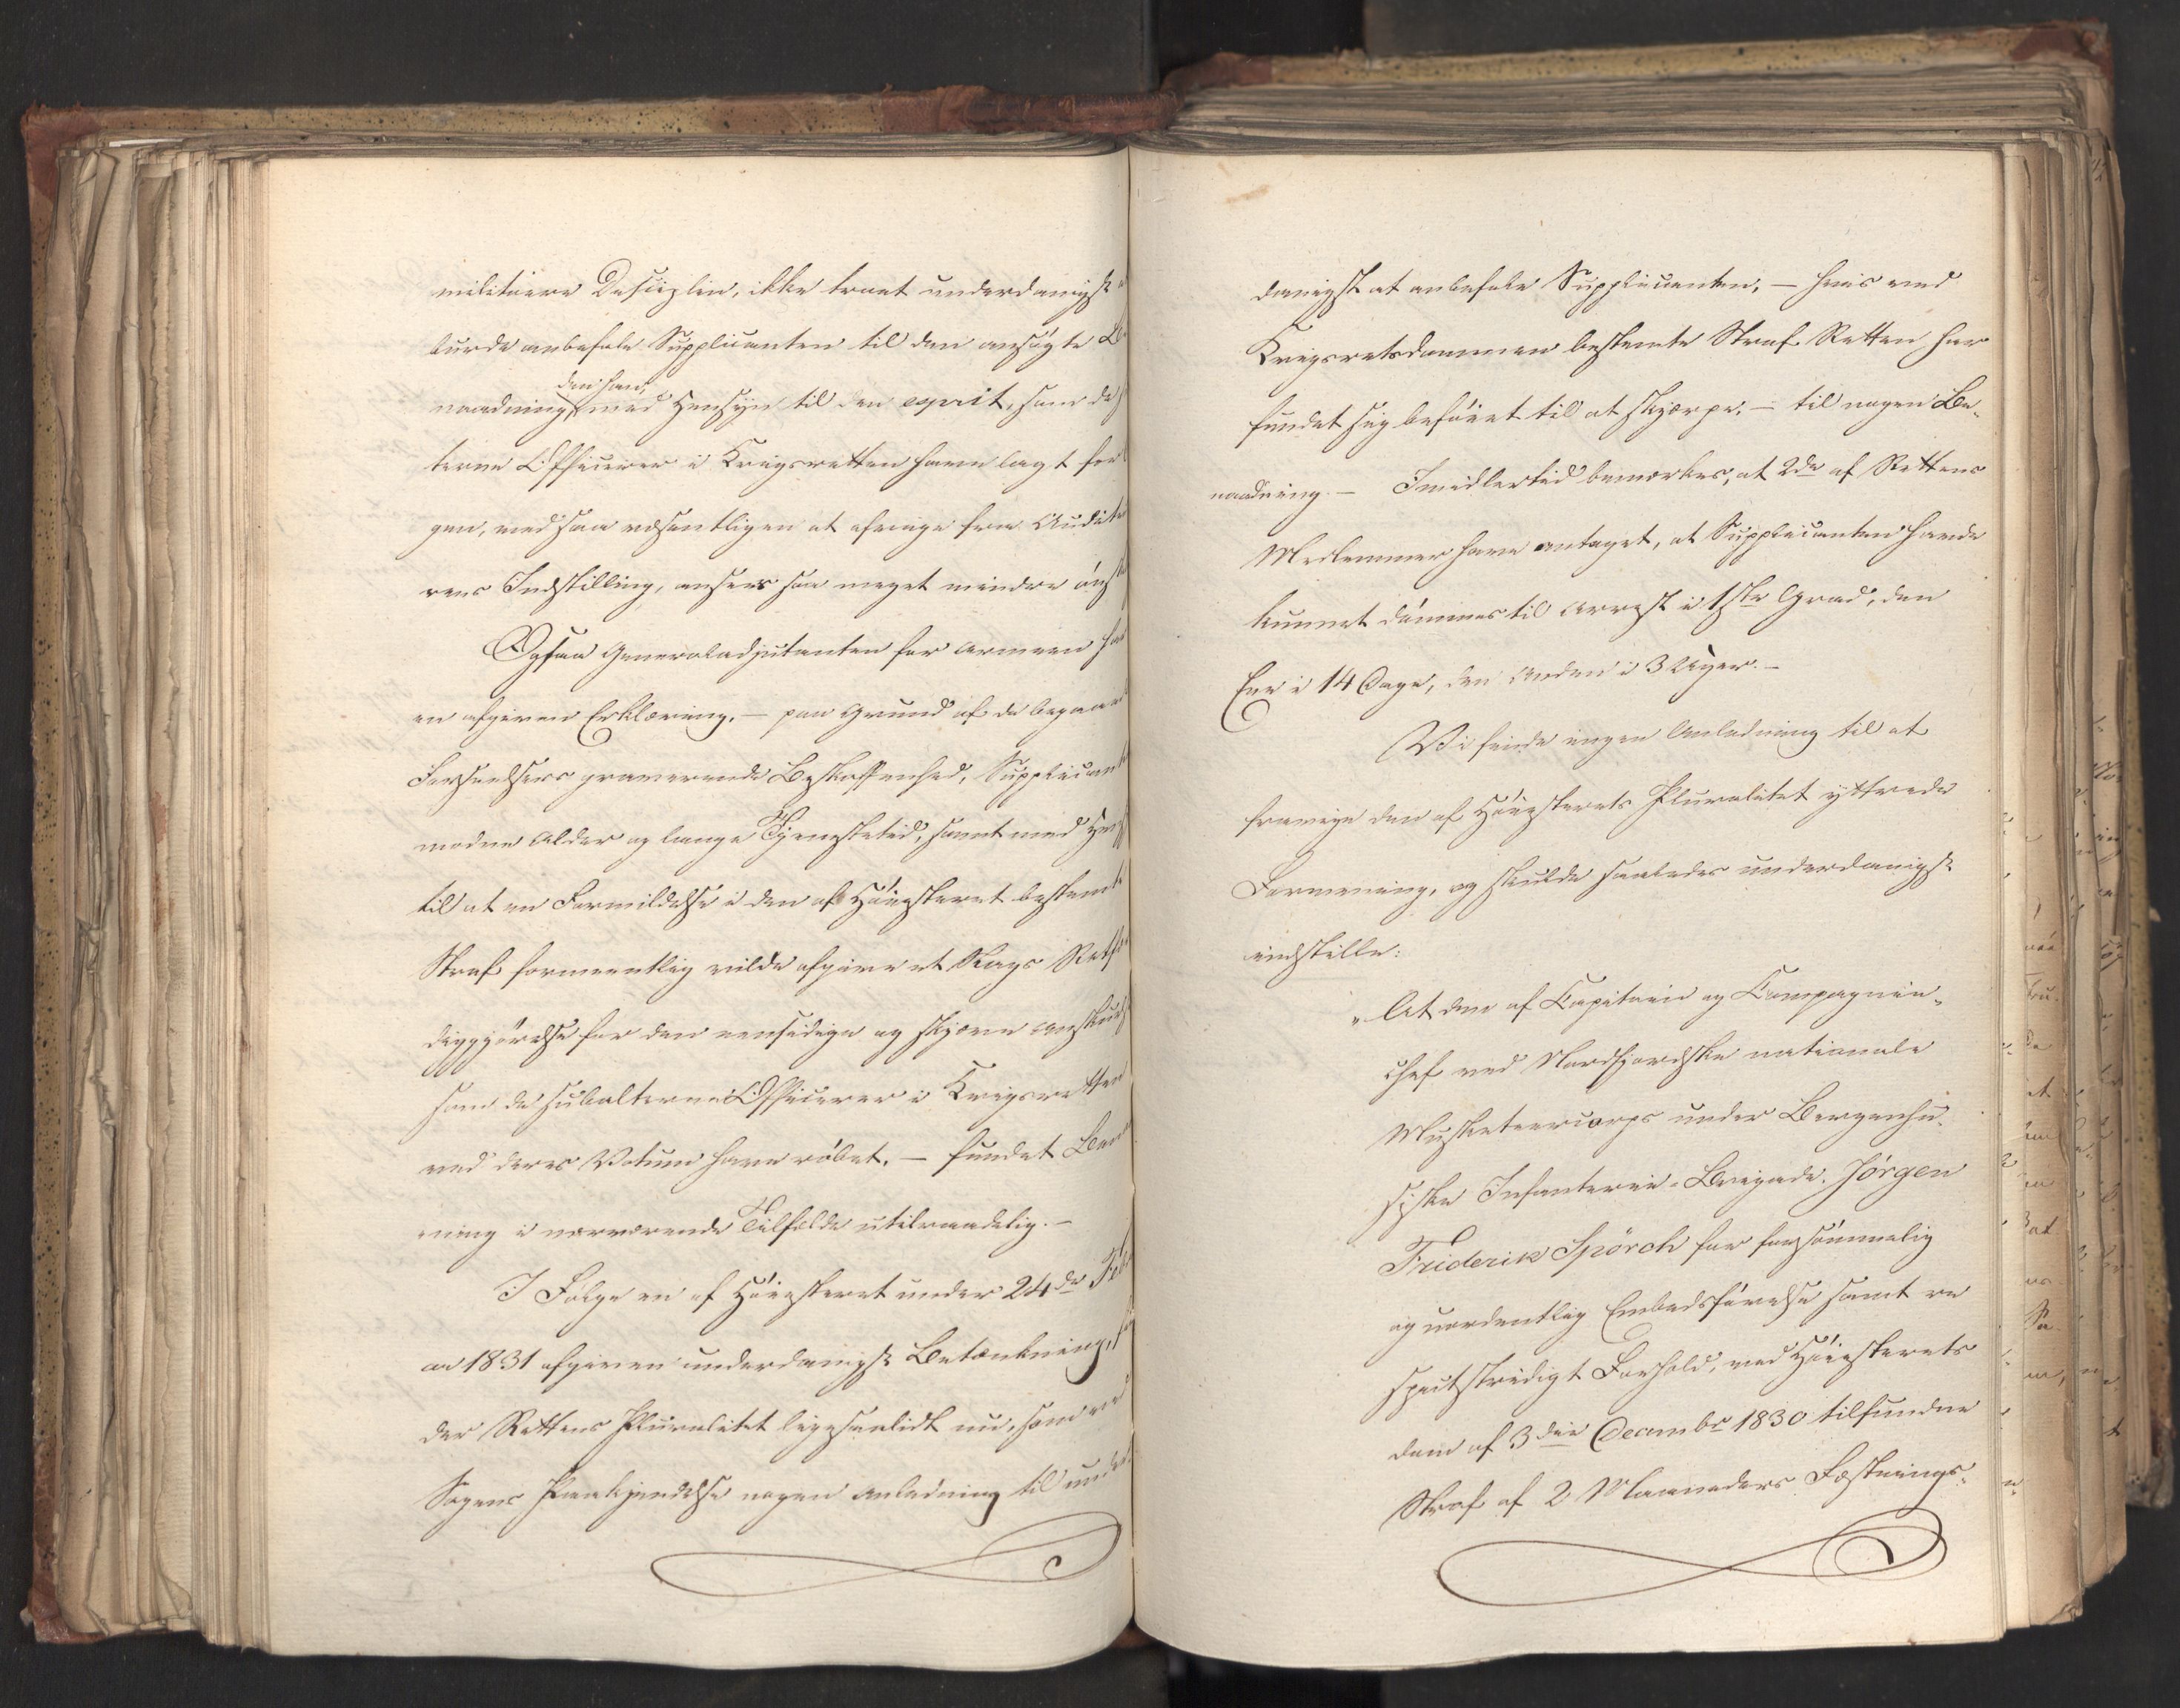 militaire Desciplin, ikke troet underdanigst
burde anbefale Supplicanten til den ansøgte
den han,
naadning, med Hensyn til den esprit, som de
terne Officierer i Krigsretten have lagt for
gen, ved saa væsentligen at afvige fra Audite
rens Indstilling, ansees saa meget mindre ønsk
Ogsaa Generaladjutanten for Armeen har
en afgiven Erklæring, – paa Grund af de begaae
Forseelsers graverende Beskaffenhed, Supplicant
modne Alder og lange Tjenestetid, samt med Hen
til at en Formildelse i den af Høiesteret bestemte
Straf formeentlig vilde afgive et Slags Retfær
diggjørelse for den eensidige og skjæve Anskuelse
som de subalterne Officierer i Krigsretten
ved deres Votum have røbet, – fundet Ben
ning i nærværende Tilfælde utilraadelig. –
I Følge en af Høiesteret under 24de Feb
ar 1831 afgiven underdanigst Betænkning,
der Rettens Pluralitet ligesaalidt nu, som ved
Sagens Paakjendelse nogen Anledning til under
danigst at anbefale Supplicanten, – hvis ved
Krigsretsdommen bestemte Straf Retten har
fundet sig beføiet til at skjærpe, – til nogen Be-
naadning. – Imidlertid bemærkes, at 2de af Rettens
Medlemmer have antaget, at Supplicanten havde
kunnet dømmes til Arrest i 1ste Grad, den
Ene i 14 Dage, den Anden i 3 Uger. –
Vi finde ingen Anledning til at
fravige den af Høiesterets Pluralitet yttrede
Formening, og skulde saaledes underdanigst
indstille:
"At den af Capitain og Compagnie-
chef ved Nordfjordske nationale
Musketeercorps under Bergenhu-
siske Infanterie-Brigade, Jørgen
Friderik Spørck for forsømmelig
og uordentlig Embedsførelse samt re
spectstridigt Forhold, ved Høiesterets
Dom af 3die Decembr 1830 tilfundne
Straf af 2 Maaneders Fæstnings-